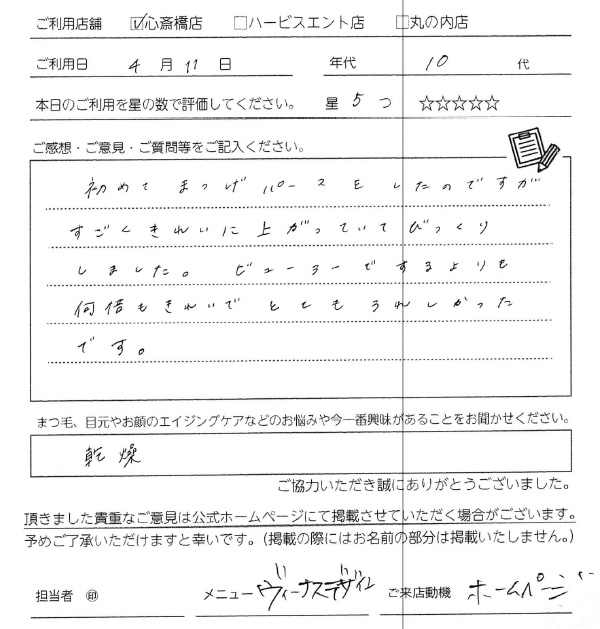 ご利用店舗 ☑心斎橋店 □ハービスエント店 □丸の内店
ご利用日 4 月 11 日 年代 10 代
本日のご利用を星の数で評価してください。 星 5 つ ☆☆☆☆☆
ご感想・ご意見・ご質問等をご記入ください。
初めてまつげパースをしたのですが
すごくきれいに上がっていてびっくり
しました。ビューラーでするよりも
何倍もきれいでとてもうれしかった
です。
まつ毛、目元やお顔のエイジングケアなどのお悩みや今一番興味があることをお聞かせください。
乾燥
ご協力いただき誠にありがとうございました。
頂きました貴重なご意見は公式ホームページにて掲載させていただく場合がございます。
予めご了承いただけますと幸いです。(掲載の際にはお名前の部分は掲載いたしません。)
担当者 ㊞ メニュー ヴィーナスデザイン ご来店動機 ホームページ